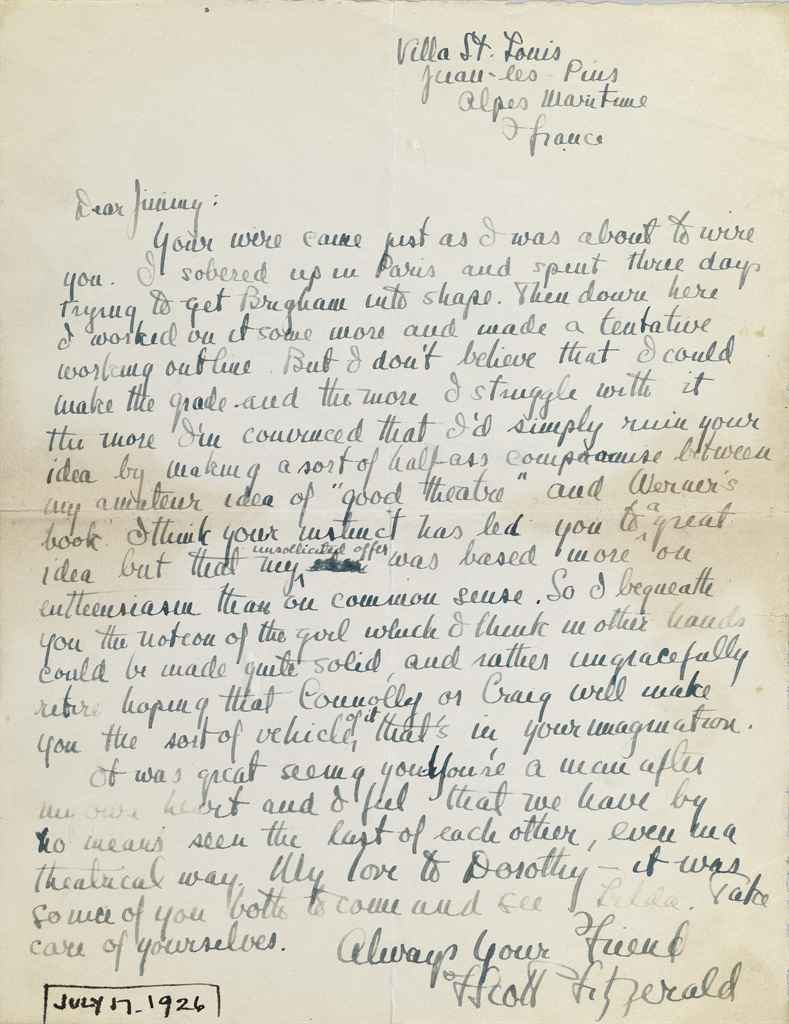 Villa St. Louis
Juan-les-Pins
Alpes Maritime
France
Dear Jimmy:
Your wire came just as I was about to wire
you. I sobered up in Paris and spent three days
trying to get Brigham into shape. Then down here
I worked on it some more and made a tentative
working outline. But I don't believe that I could
make the grade and the more I struggle with it
the more I'm convinced that I'd simply ruin your
idea by making a sort of half-ass compromise between
my amateur idea of "good theatre" and Werner's
book. I think your instinct has led you to a great
idea but that my unsollicited offer was based more on
entheusiasm than on common sense. So I bequeathe
you the notion of the girl which I think in other hands
could be made quite solid, and rather ungracefully
retire hoping that Connolly or Craig will make
you the sort of vehicle of it that's in your imagination.
It was great seeing you. You're a man after
my own heart and I feel that we have by
no means seen the last of each other, even in a
theatrical way. My love to Dorothy – it was
so nice of you both to come and see Zelda. Take
care of yourselves.
Always Your Friend
F Scott Fitzgerald
JULY 17-1926